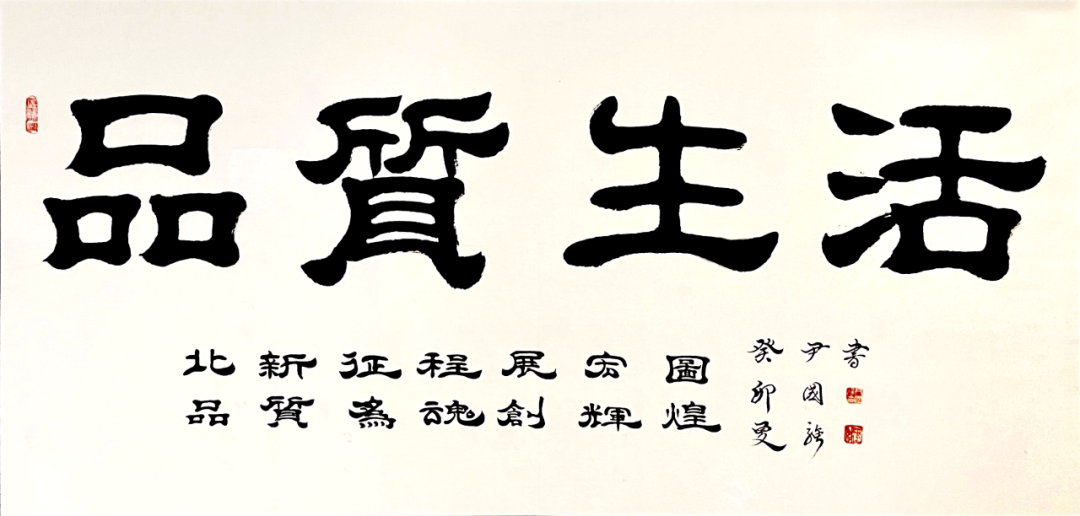 品質生活
北新征程展宏圖
品質為魂創輝煌
癸卯夏
尹國
書